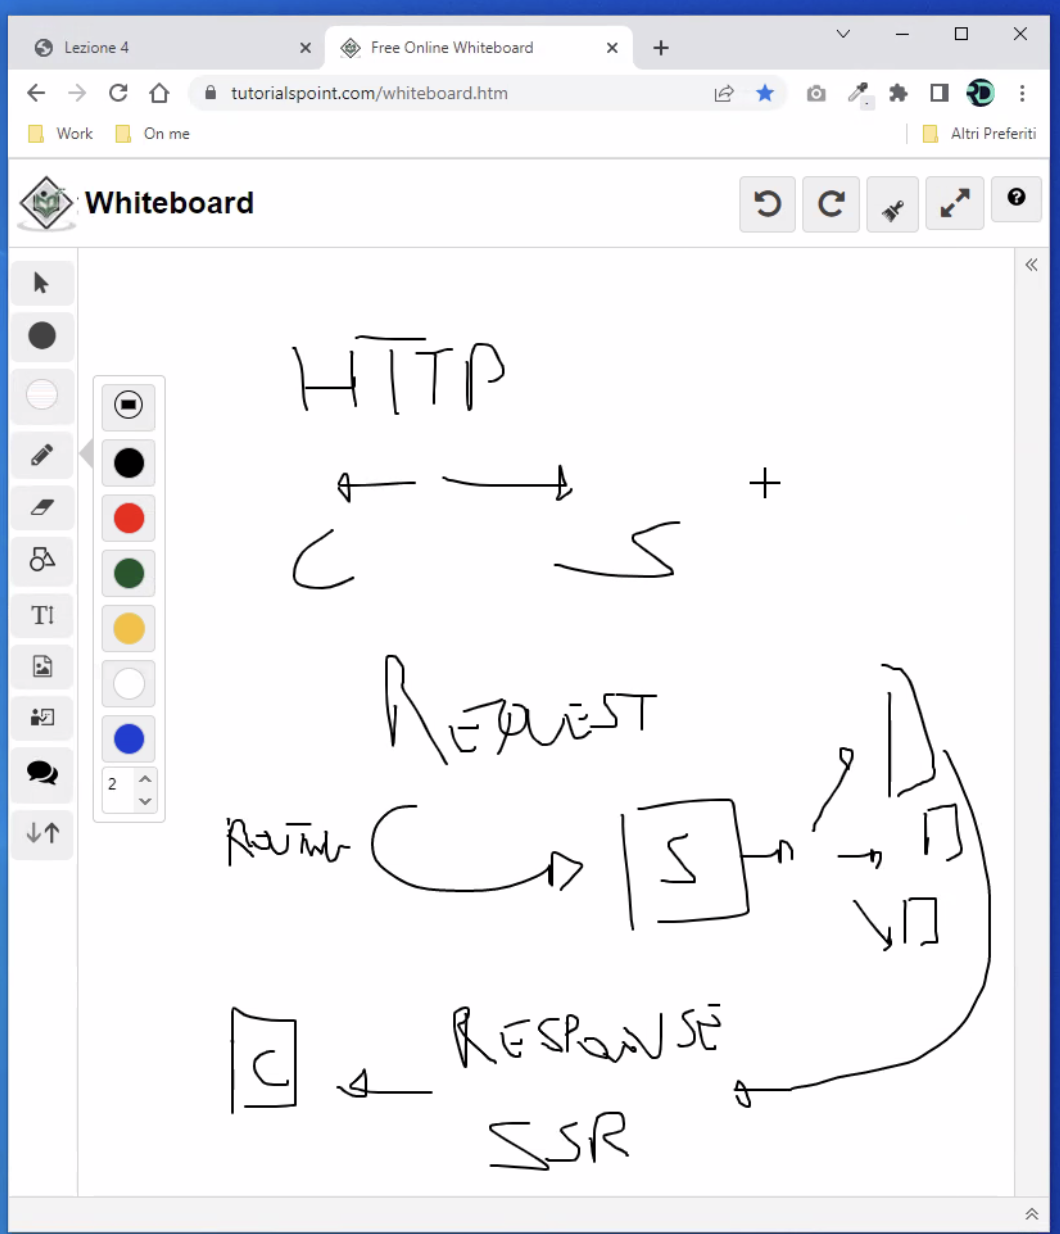 Lezione 4
Free Online Whiteboard
tutorialspoint.com/whiteboard.htm
Work
On me
Altri Preferiti
Whiteboard
HTTP
C S
REQUEST
ROUTING
S
2
C
RESPONSE
SSR